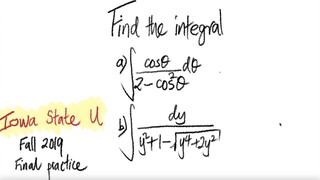 Find the integral
a) ∫ cosθ / (2 - cos²θ) dθ
Iowa State U
Fall 2019
Final practice
b) ∫ dy / (y²+1-√(y⁴+2y²))